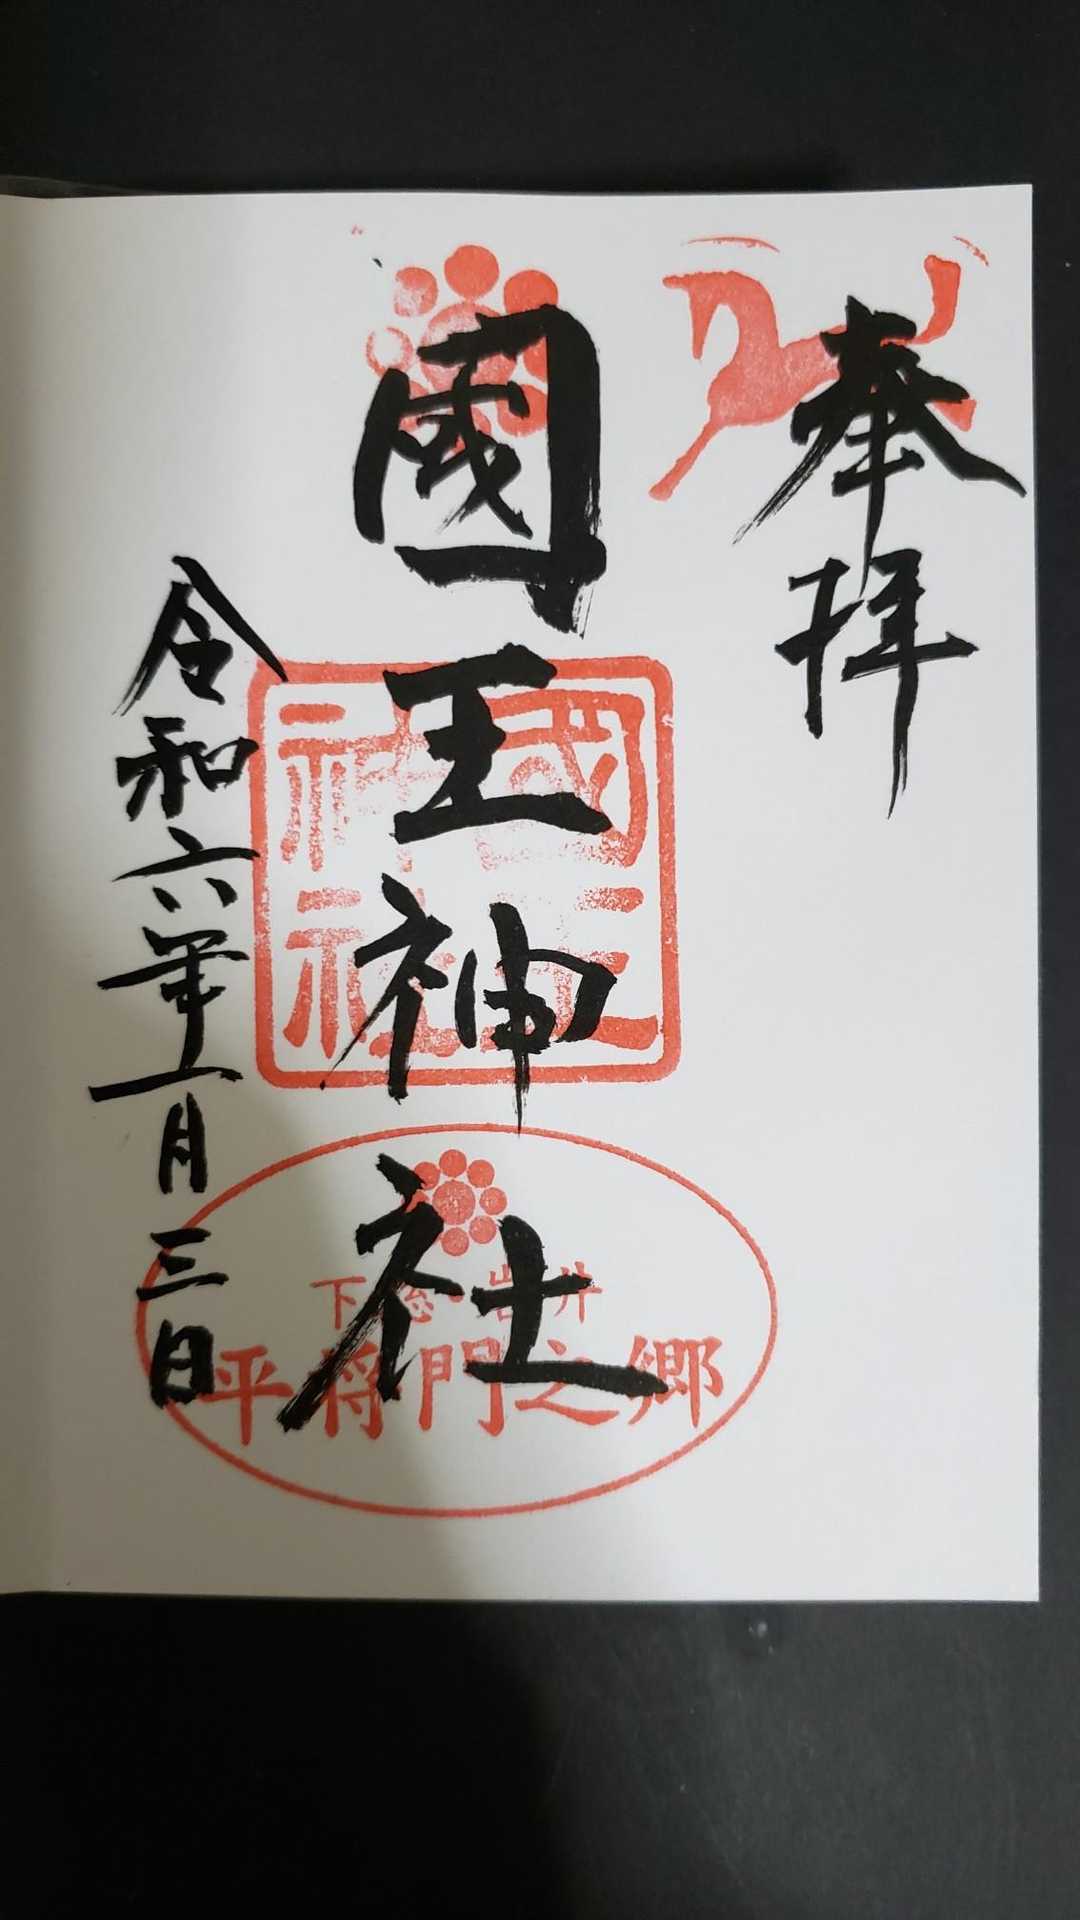 奉拝
國王神社
令和六年一月三日
國王神社
下総・岩井
平将門之郷